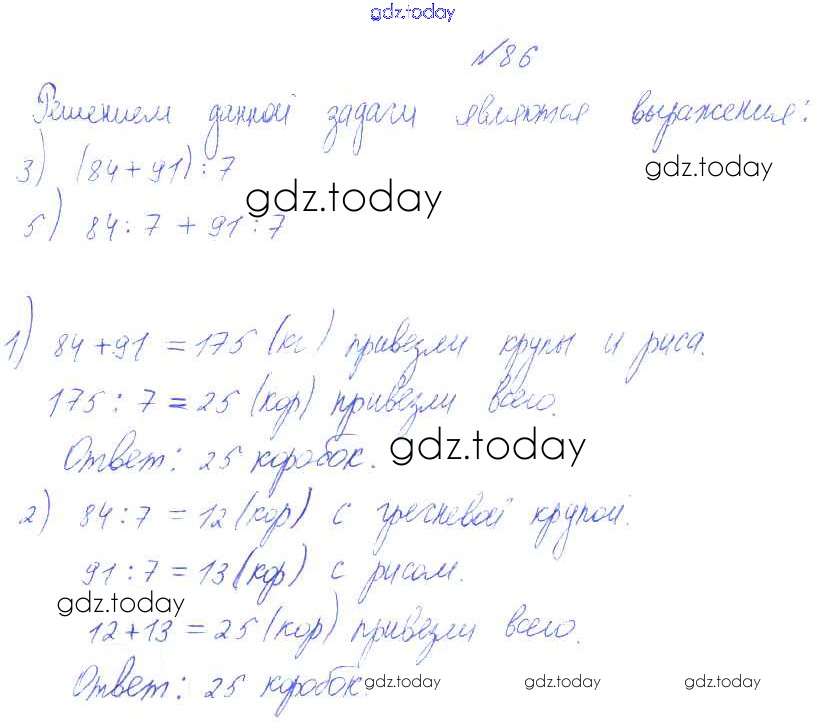 gdz.today
№86
Решением данной задачи являются выражения:
3) (84+91):7
gdz.today
gdz.today
5) 84:7+91:7
1) 84+91=175 (кг) привезли крупы и риса.
175:7=25 (кор) привезли всего.
Ответ: 25 коробок.
gdz.today
2) 84:7=12 (кор) с гречневой крупой.
91:7=13 (кор) с рисом.
gdz.today
12+13=25 (кор) привезли всего.
Ответ: 25 коробок.
gdz.today gdz.today gdz.today